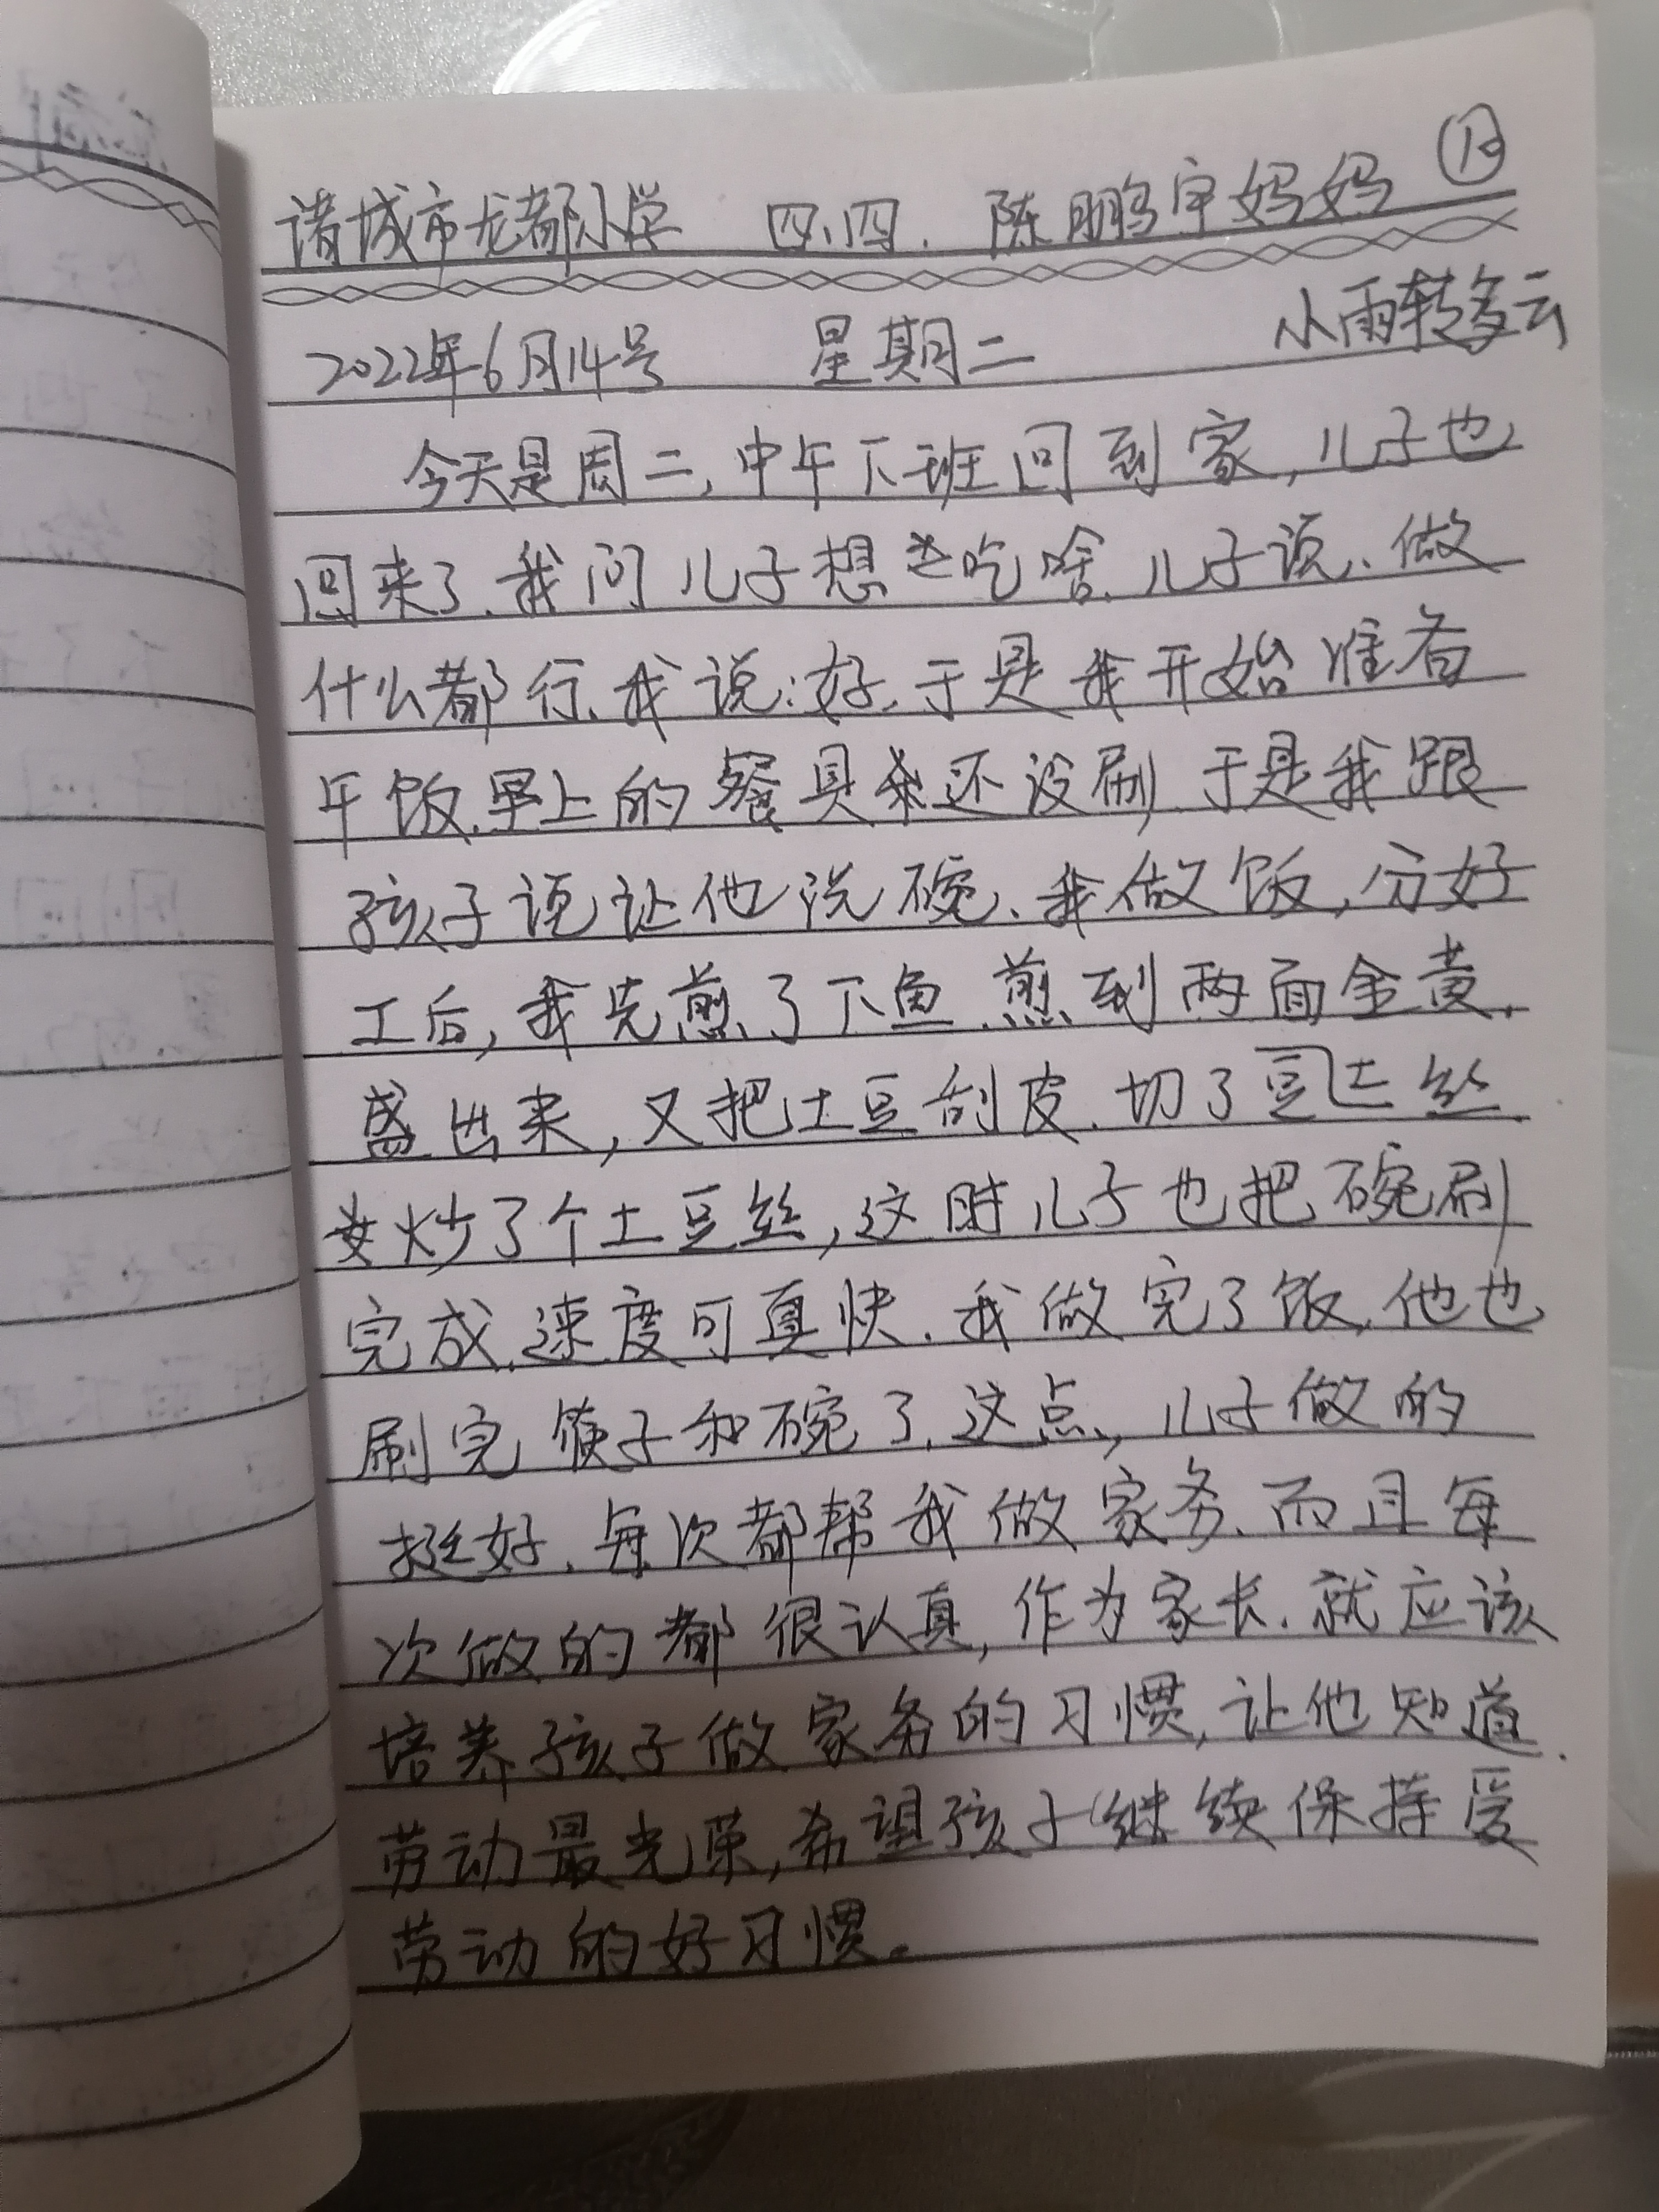 诸城市龙都小学 四.四. 陈鹏宇妈妈
2022年6月14号 星期二 小雨转多云
今天是周二,中午下班回到家,儿子也
回来了.我问儿子想吃啥.儿子说、做
什么都行.我说:好.于是我开始准备
午饭.早上的餐具还没刷,于是我跟
孩子说让他洗碗、我做饭,分好
工后,我先煎了下鱼.煎到两面金黄.
盛出来,又把土豆刮皮.切了土豆丝.
炒了个土豆丝,这时儿子也把碗刷
完成.速度可真快.我做完了饭.他也
刷完筷子和碗了.这点,儿子做的
挺好.每次都帮我做家务.而且每
次做的都很认真,作为家长.就应该
培养孩子做家务的习惯,让他知道.
劳动最光荣,希望孩子继续保持爱
劳动的好习惯。